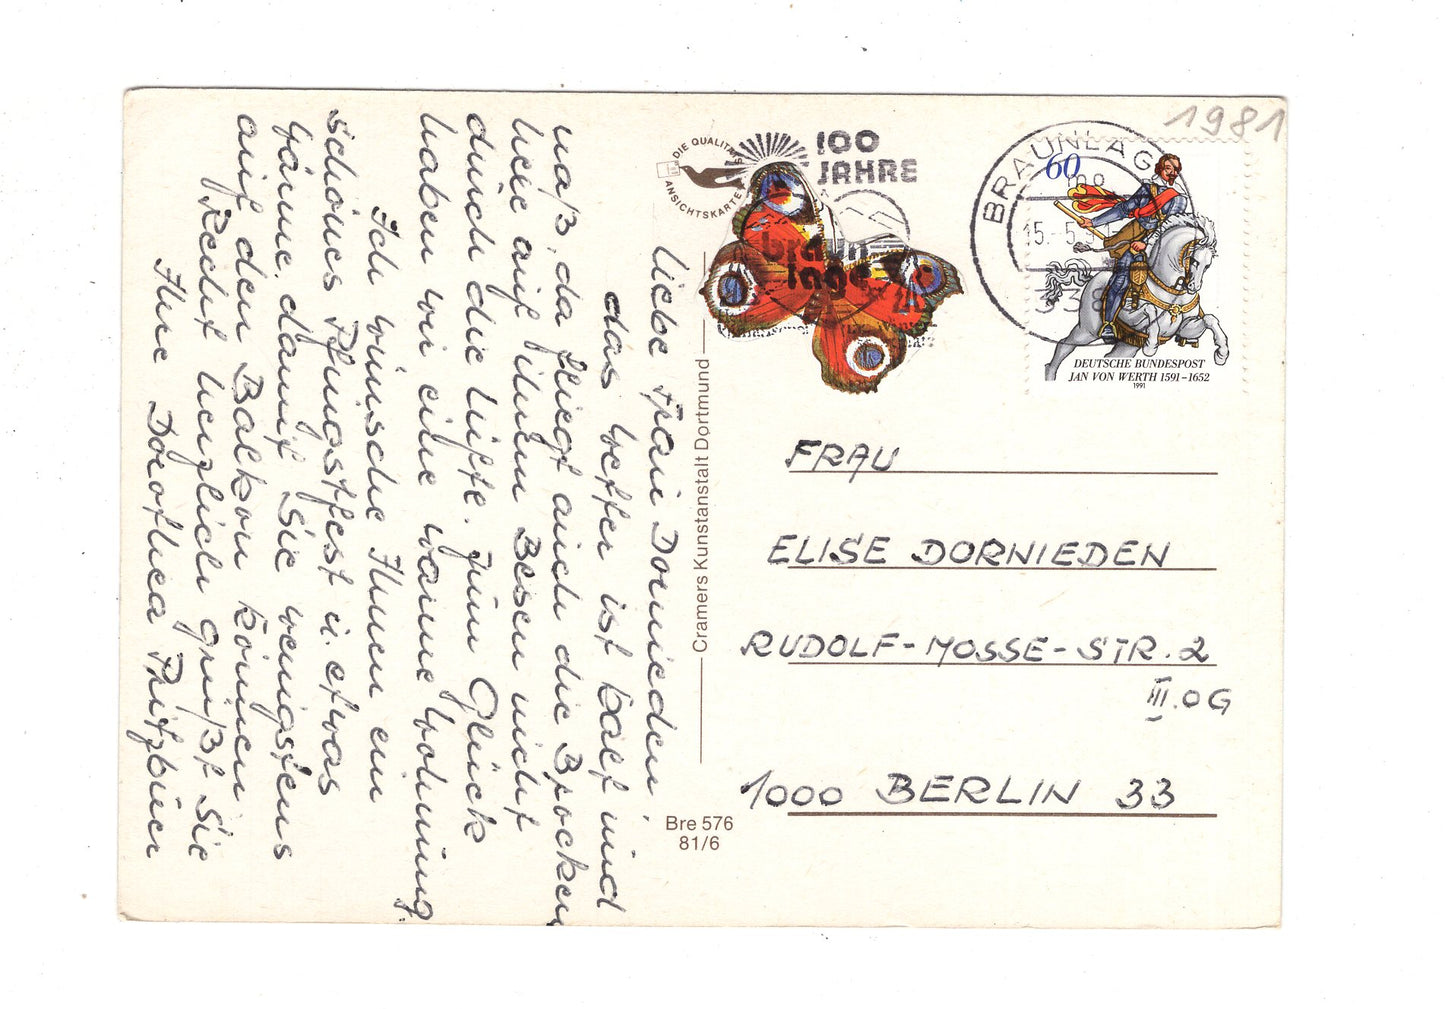 1981
DIE QUALITÄTS
ANSICHTSKARTE
100
JAHRE
braun
lage
BRAUNLAGE
15.-5
38
60
DEUTSCHE BUNDESPOST
JAN VON WERTH 1591–1652
1991
Liebe Frau Dornieden,
das Wetter ist kalt und
naß, da fliegt auch die Brocken
hexe auf ihrem Besen nicht
durch die Lüfte. Zum Glück
haben wir eine warme Wohnung.
Ich wünsche Ihnen ein
schönes Pfingstfest u. etwas
Wärme, damit Sie wenigstens
auf den Balkon können.
Recht herzlich grüßt Sie
Ihre Dorothea
Cramers Kunstanstalt Dortmund
Bre 576
81/6
FRAU
ELISE DORNIEDEN
RUDOLF-MOSSE-STR. 2
III.OG
1000 BERLIN 33